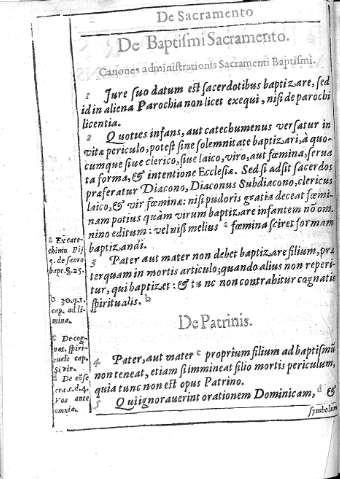 De Sacramento
De Baptiſmi Sacramento.
Canones adminiſtrationis Sacramenti Baptiſmi.
1 Jure ſuo datum eſt ſacerdotibus baptizare, ſed
id in aliena Parochia non licet exequi, niſi de parochi
licentia.
2 Quoties infans, aut catechumenus verſatur in
vitæ periculo, poteſt ſine ſolemnitate baptizari, à quo-
cumque ſiue clerico, ſiue laico, viro, aut fœmina, ſerua
ta forma, & intentione Eccleſiæ. Sed ſi adſit ſacerdos
præferatur Diacono, Diaconus Subdiacono, clericus
laico, & vir fœminæ: niſi pudoris gratia deceat fœmi-
nam potius quàm virum baptizare infantem nō om̄
nino editum: vel niſi melius fœmina ſciret formam
baptizandi.
3 Pater aut mater non debet baptizare filium, præ
terquam in mortis articulo; quando alius non reperi-
tur, qui baptizet: & tūc non contrahitur cognatio
ſpiritualis.
De Patrinis.
4 Pater, aut mater c proprium filium ad baptiſmū
non teneat, etiam ſi immineat filio mortis periculum,
quia tunc non eſt opus Patrino.
5 Qui ignorauerint orationem Dominicam, d &
ſymbolum
a Ex cate-
chiſmo Pij
5. de ſacro
bapt. §. 25.
b 30. q. 1.
cap. ad li-
mina.
c De cog-
nat. ſpiri-
cap.
ſi vir.
d De cōſe
cra. d. 4.
vos ante
omnia.